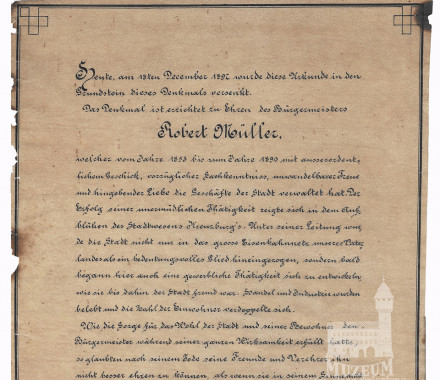 Heute, am 18ten December 1897 wurde diese Urkunde in den
Grundstein dieses Denkmals versenkt.
Das Denkmal ist errichtet zu Ehren des Bürgermeisters
Robert Müller,
welcher vom Jahre 1853 bis zum Jahre 1890 mit ausserordent-
lichem Geschick, vorzüglicher Sachkenntniss, unwandelbarer Treue
und hingebender Liebe die Geschäfte der Stadt verwaltet hat. Der
Erfolg seiner unermüdlichen Thätigkeit zeigte sich in dem Auf-
blühen des Stadtwesens Kreuzburg's. Unter seiner Leitung wur-
de die Stadt nicht nur in das grosse Eisenbahnnetz unsers Vater-
landes als ein bedeutungsvolles Glied hineingezogen, sondern bald
begann hier auch eine gewerbliche Thätigkeit sich zu entwickeln
wie sie bis dahin der Stadt fremd war: Handel und Industrie wurden
belebt und die Zahl der Einwohner verdoppelte sich.
Wie die Sorge für das Wohl der Stadt und seiner Bewohner den
Bürgermeister während seiner ganzen Wirksamkeit erfüllt hatte,
so glaubten nach seinem Tode seine Freunde und Verehrer ihn
nicht besser ehren zu können, als wenn sie in seinem
MUZEUM